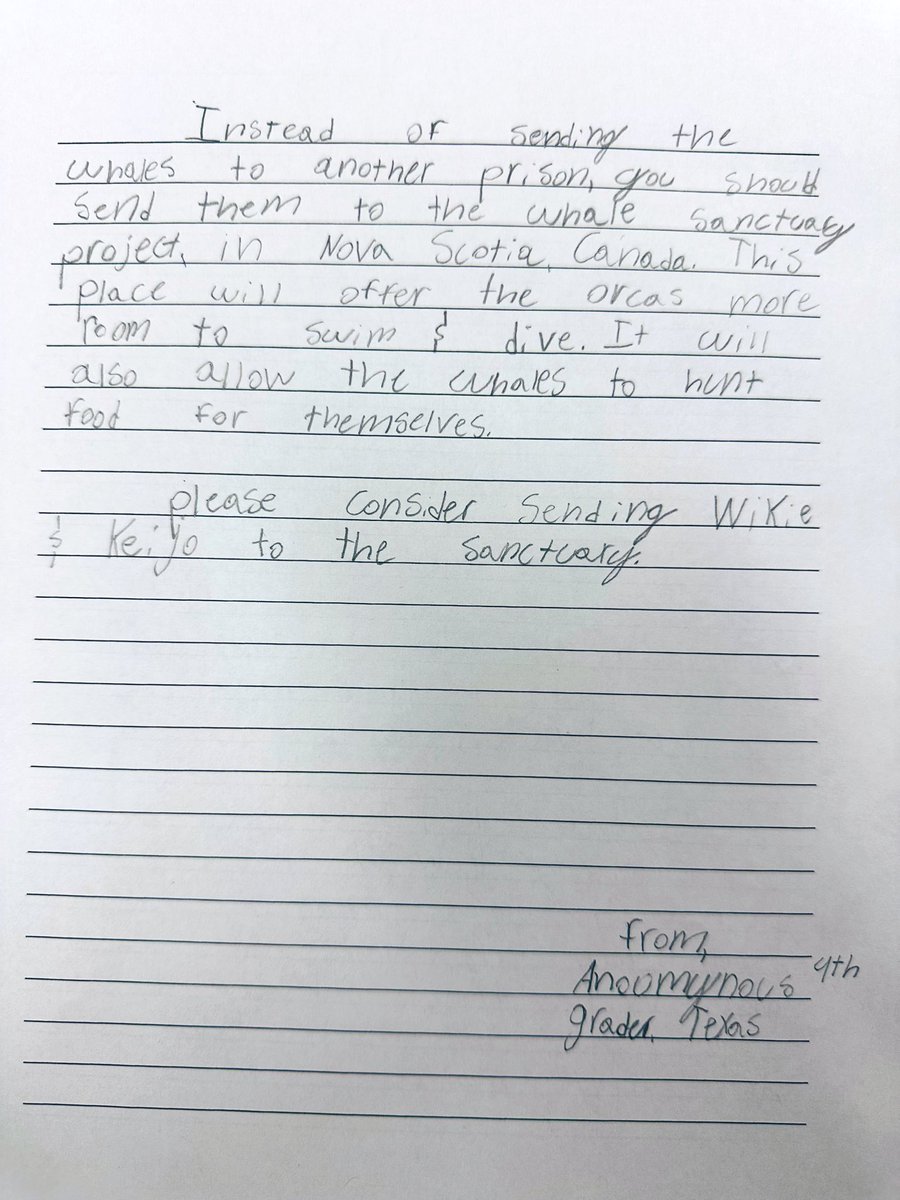 Instead of sending the
whales to another prison, you should
send them to the whale sanctuary
project, in Nova Scotia, Canada. This
place will offer the orcas more
room to swim & dive. It will
also allow the whales to hunt
food for themselves.
please consider sending Wikie
& Keijo to the sanctuary.
from,
Anoumynous 4th
grader, Texas